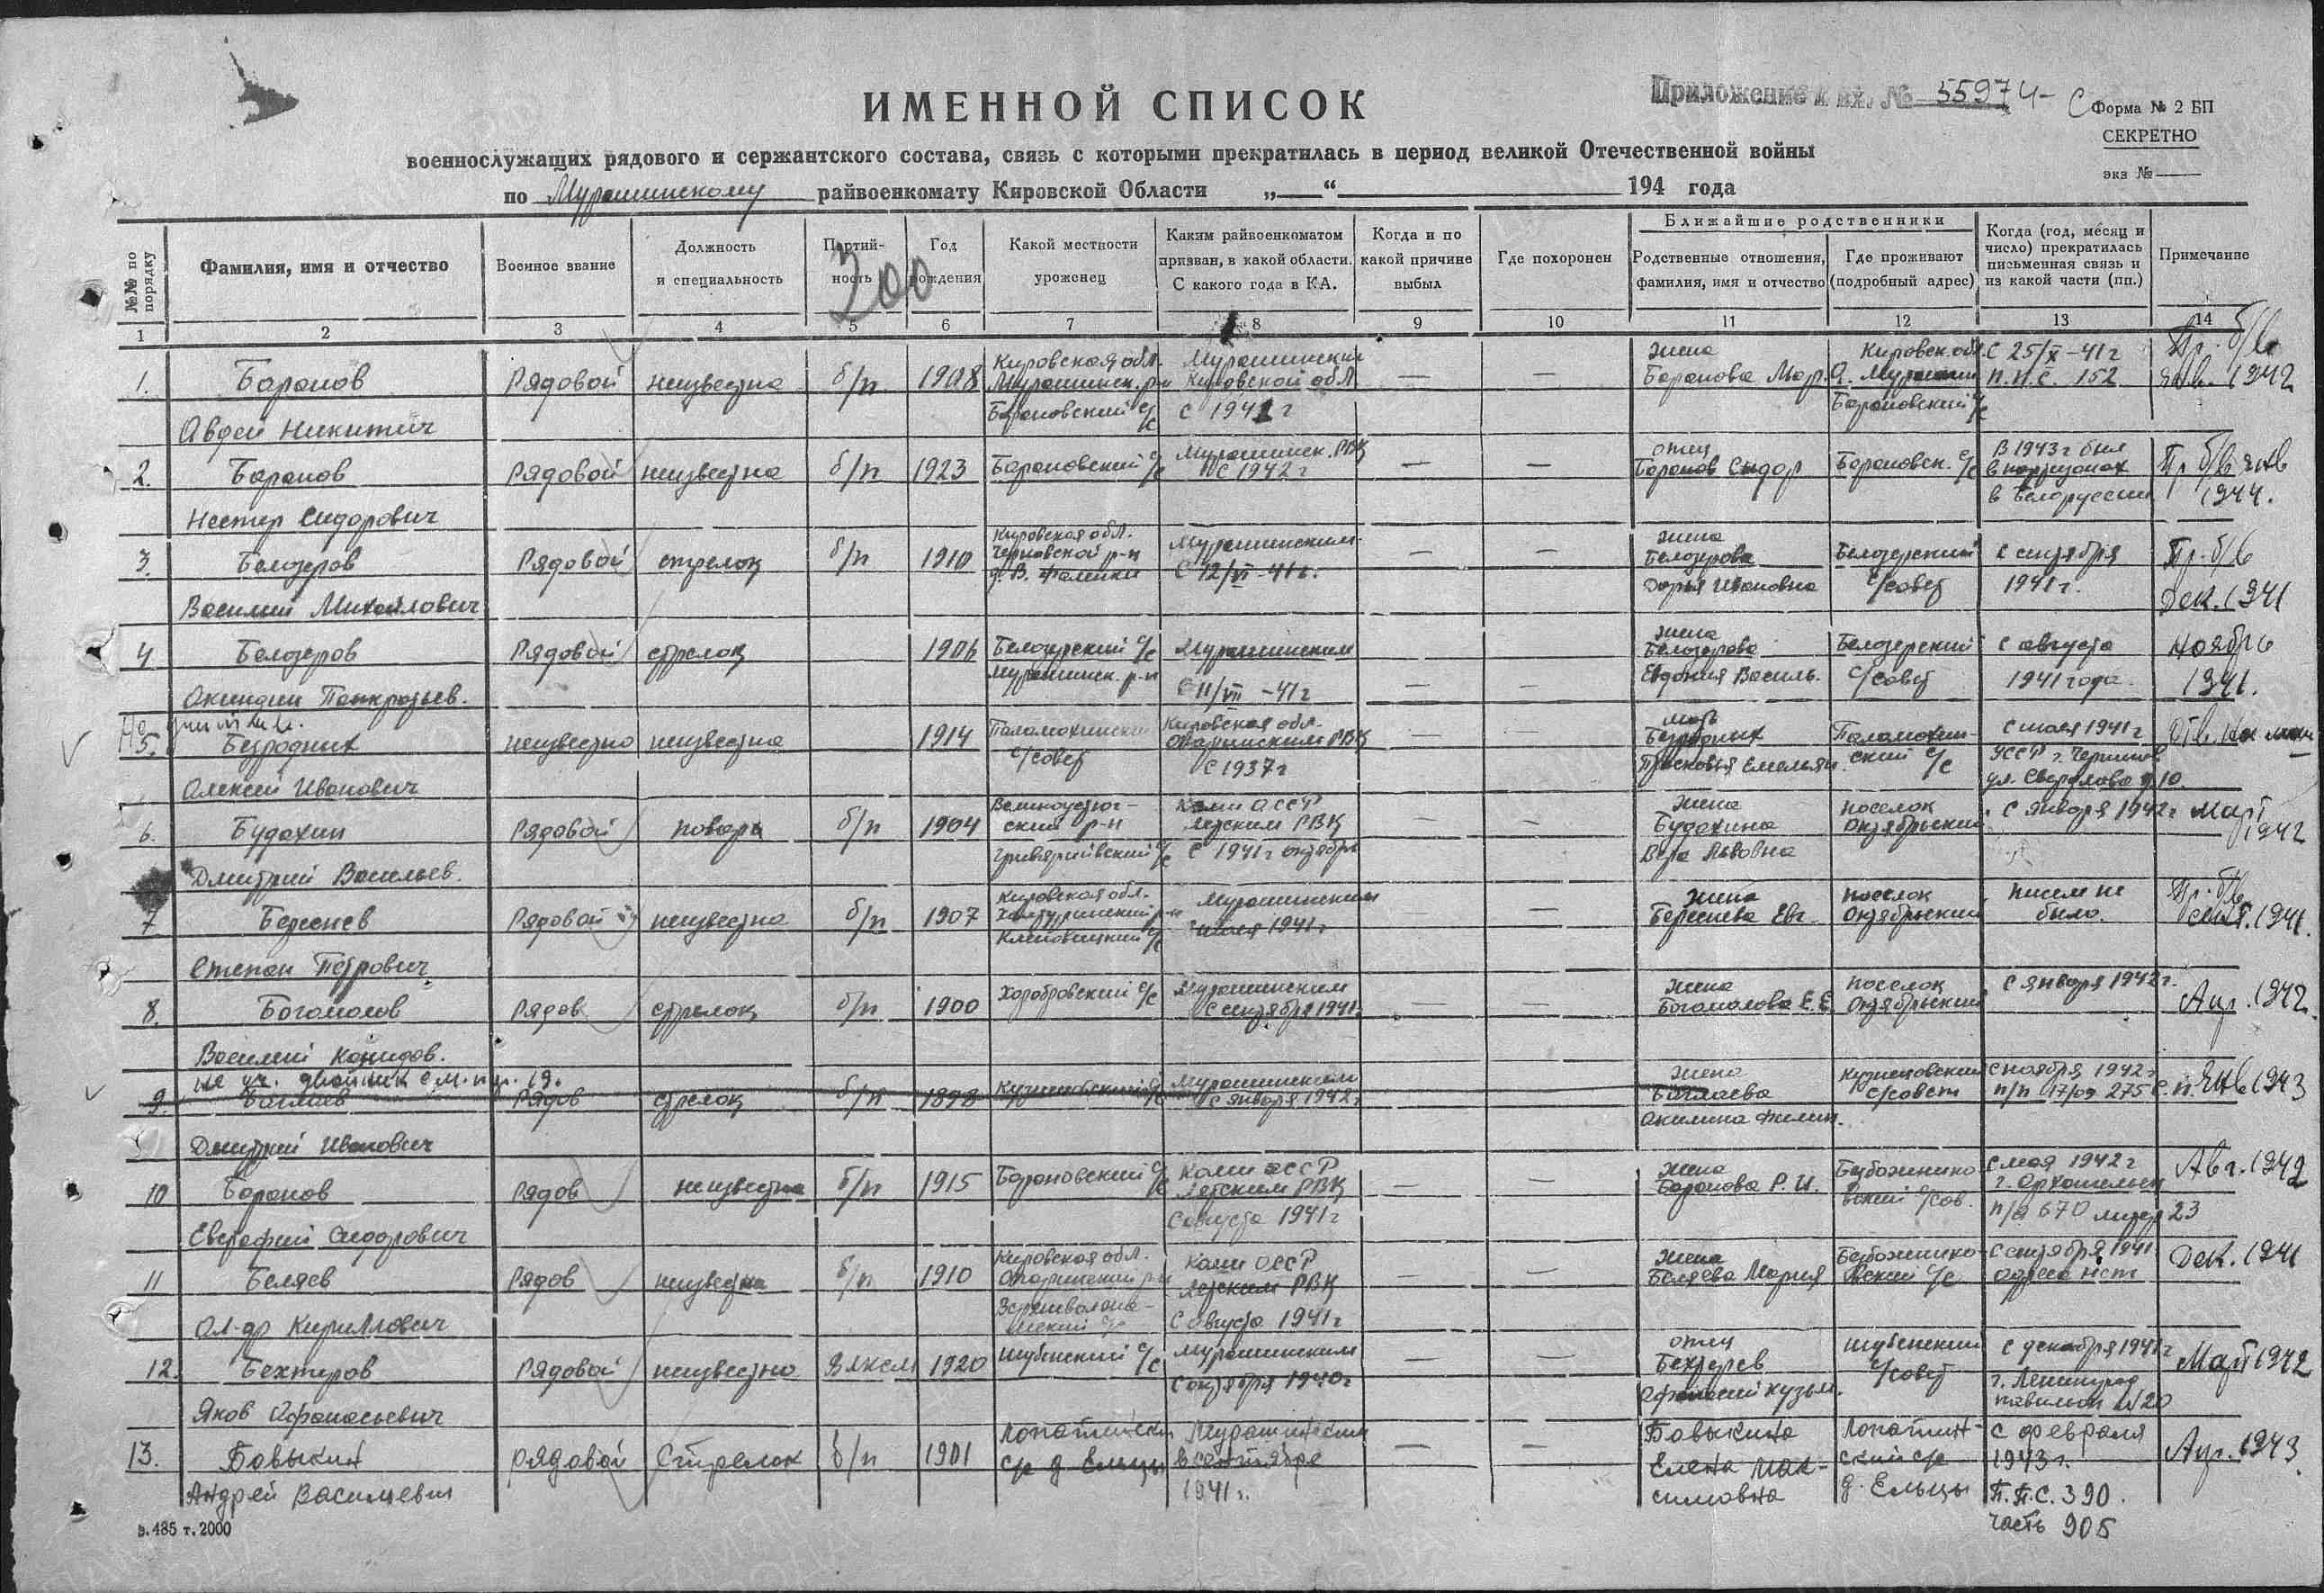 ИМЕННОЙ СПИСОК
Приложение к вх. № 55974-с
Форма № 2 БП
СЕКРЕТНО
экз №
военнослужащих рядового и сержантского состава, связь с которыми прекратилась в период великой Отечественной войны
по Мурашинскому райвоенкомату Кировской Области „ “ 194 года
№№ по порядку
Фамилия, имя и отчество
Военное звание
Должность и специальность
Партий-ность
200
Год рождения
Какой местности уроженец
Каким райвоенкоматом призван, в какой области. С какого года в КА.
Когда и по какой причине выбыл
Где похоронен
Ближайшие родственники
Родственные отношения, фамилия, имя и отчество
Где проживают (подробный адрес)
Когда (год, месяц и число) прекратилась письменная связь и из какой части (пп.)
Примечание
1 2 3 4 5 6 7 8 9 10 11 12 13 14
1. Баранов Авдей Никитич Рядовой неизвестна б/п 1908 Кировская обл. Мурашинск. р-н Барановский с/с Мурашинским Кировской обл. с 1941 г — — жена Баранова Мар. А. Кировск. обл. Мураши Барановский с/с С 25/X-41 г п.п.с. 152 Пр. б/в янв. 1942
2. Баранов Нестер Сидорович Рядовой неизвестна б/п 1923 Барановский с/с Мурашинск. РВК с 1942 г — — отец Баранов Сидор Барановск. с/с В 1943 г был в партизанах в Белоруссии Пр б/в янв 1944.
3. Белозеров Василий Михайлович Рядовой стрелок б/п 1910 Кировская обл. Черновской р-н д. В. Фаленки Мурашинским С 12/VI-41 г. — — жена Белозерова Дарья Ивановна Белозерский с/совет с сентября 1941 г. Пр. б/в Дек. 1941
4 Белозеров Акиндин Панкратьев. Рядовой стрелок 1906 Белозерский с/с Мурашинск. р-н Мурашинским С 11/VII-41 г — — жена Белозерова Евдокия Василь. Белозерский с/совет с августа 1941 года. Ноябрь 1941.
5. Безродных Алексей Иванович неизвестно неизвестна 1914 Паламохинский с/совет Кировская обл. Опаринским РВК с 1937 г — — мать Безродных Прасковья Емельян. Паламохин-ский с/с С июля 1941 г УССР г. Чернигов ул. Свердлова д. 10.
6. Будахин Дмитрий Васильев. Рядовой повар б/п 1904 Великоустюг-ский р-н Коми АССР Летским РВК с 1941 г октября — — жена Будахина Вера Львовна поселок Октябрьский С января 1942 г Март 1942
7 Береснев Степан Петрович Рядовой неизвестна б/п 1907 Кировская обл. Халтуринский р-н Кленовицкий с/с Мурашинским июля 1941 г — жена Береснева Евг. поселок Октябрьский писем не было. Пр. б/в сент. 1941.
8. Богомолов Василий Рядов стрелок б/п 1900 Хоробровский с/с Мурашинским С сентября 1941 г. — — жена Богомолова Е. Е. поселок Октябрьский С января 1942 г. Апр. 1942.
не уч. двойник см. п. 19.
9. Боглаев Дмитрий Иванович Рядов стрелок б/п 1898 Кузнецовский с/с Мурашинским С января 1942 г — — жена Боглаева Акилина Филип. Кузнецовский с/совет С ноября 1942 г п/п 17/09 275 с.п. Янв 1943
10 Баранов Евстафий Сидорович Рядов неизвестна б/п 1915 Барановский с/с Коми АССР Летским РВК С августа 1941 г — — жена Баранова Р. И. С мая 1942 г г. Архангельск п/я 670 литер 23 Авг. 1942
11 Беляев Ал-др Кириллович Рядов неизвестна б/п 1910 Кировская обл. Опаринский р-н Коми АССР Летским РВК С августа 1941 г — — жена Беляева Мария С сентября 1941 адреса нет Дек. 1941
12. Бехтерев Яков Афанасьевич Рядовой неизвестно ВЛКСМ 1920 Шубенский с/с Мурашинским С октября 1940 г — — отец Бехтерев Афанасий Кузьм. Шубенский с/совет С декабря 1941 г г. Ленинград павильон № 20 Март 1942
13. Бовыкин Андрей Васильевич Рядовой Стрелок б/п 1901 Лопатинский с/с д Ельцы Мурашинским в сентябре 1941 г. — — Бовыкина Елена Мак-симовна Лопатин-ский с/с д. Ельцы с февраля 1943 г. П.П.С. 390. часть 905 Апр. 1943
з. 485 т. 2000